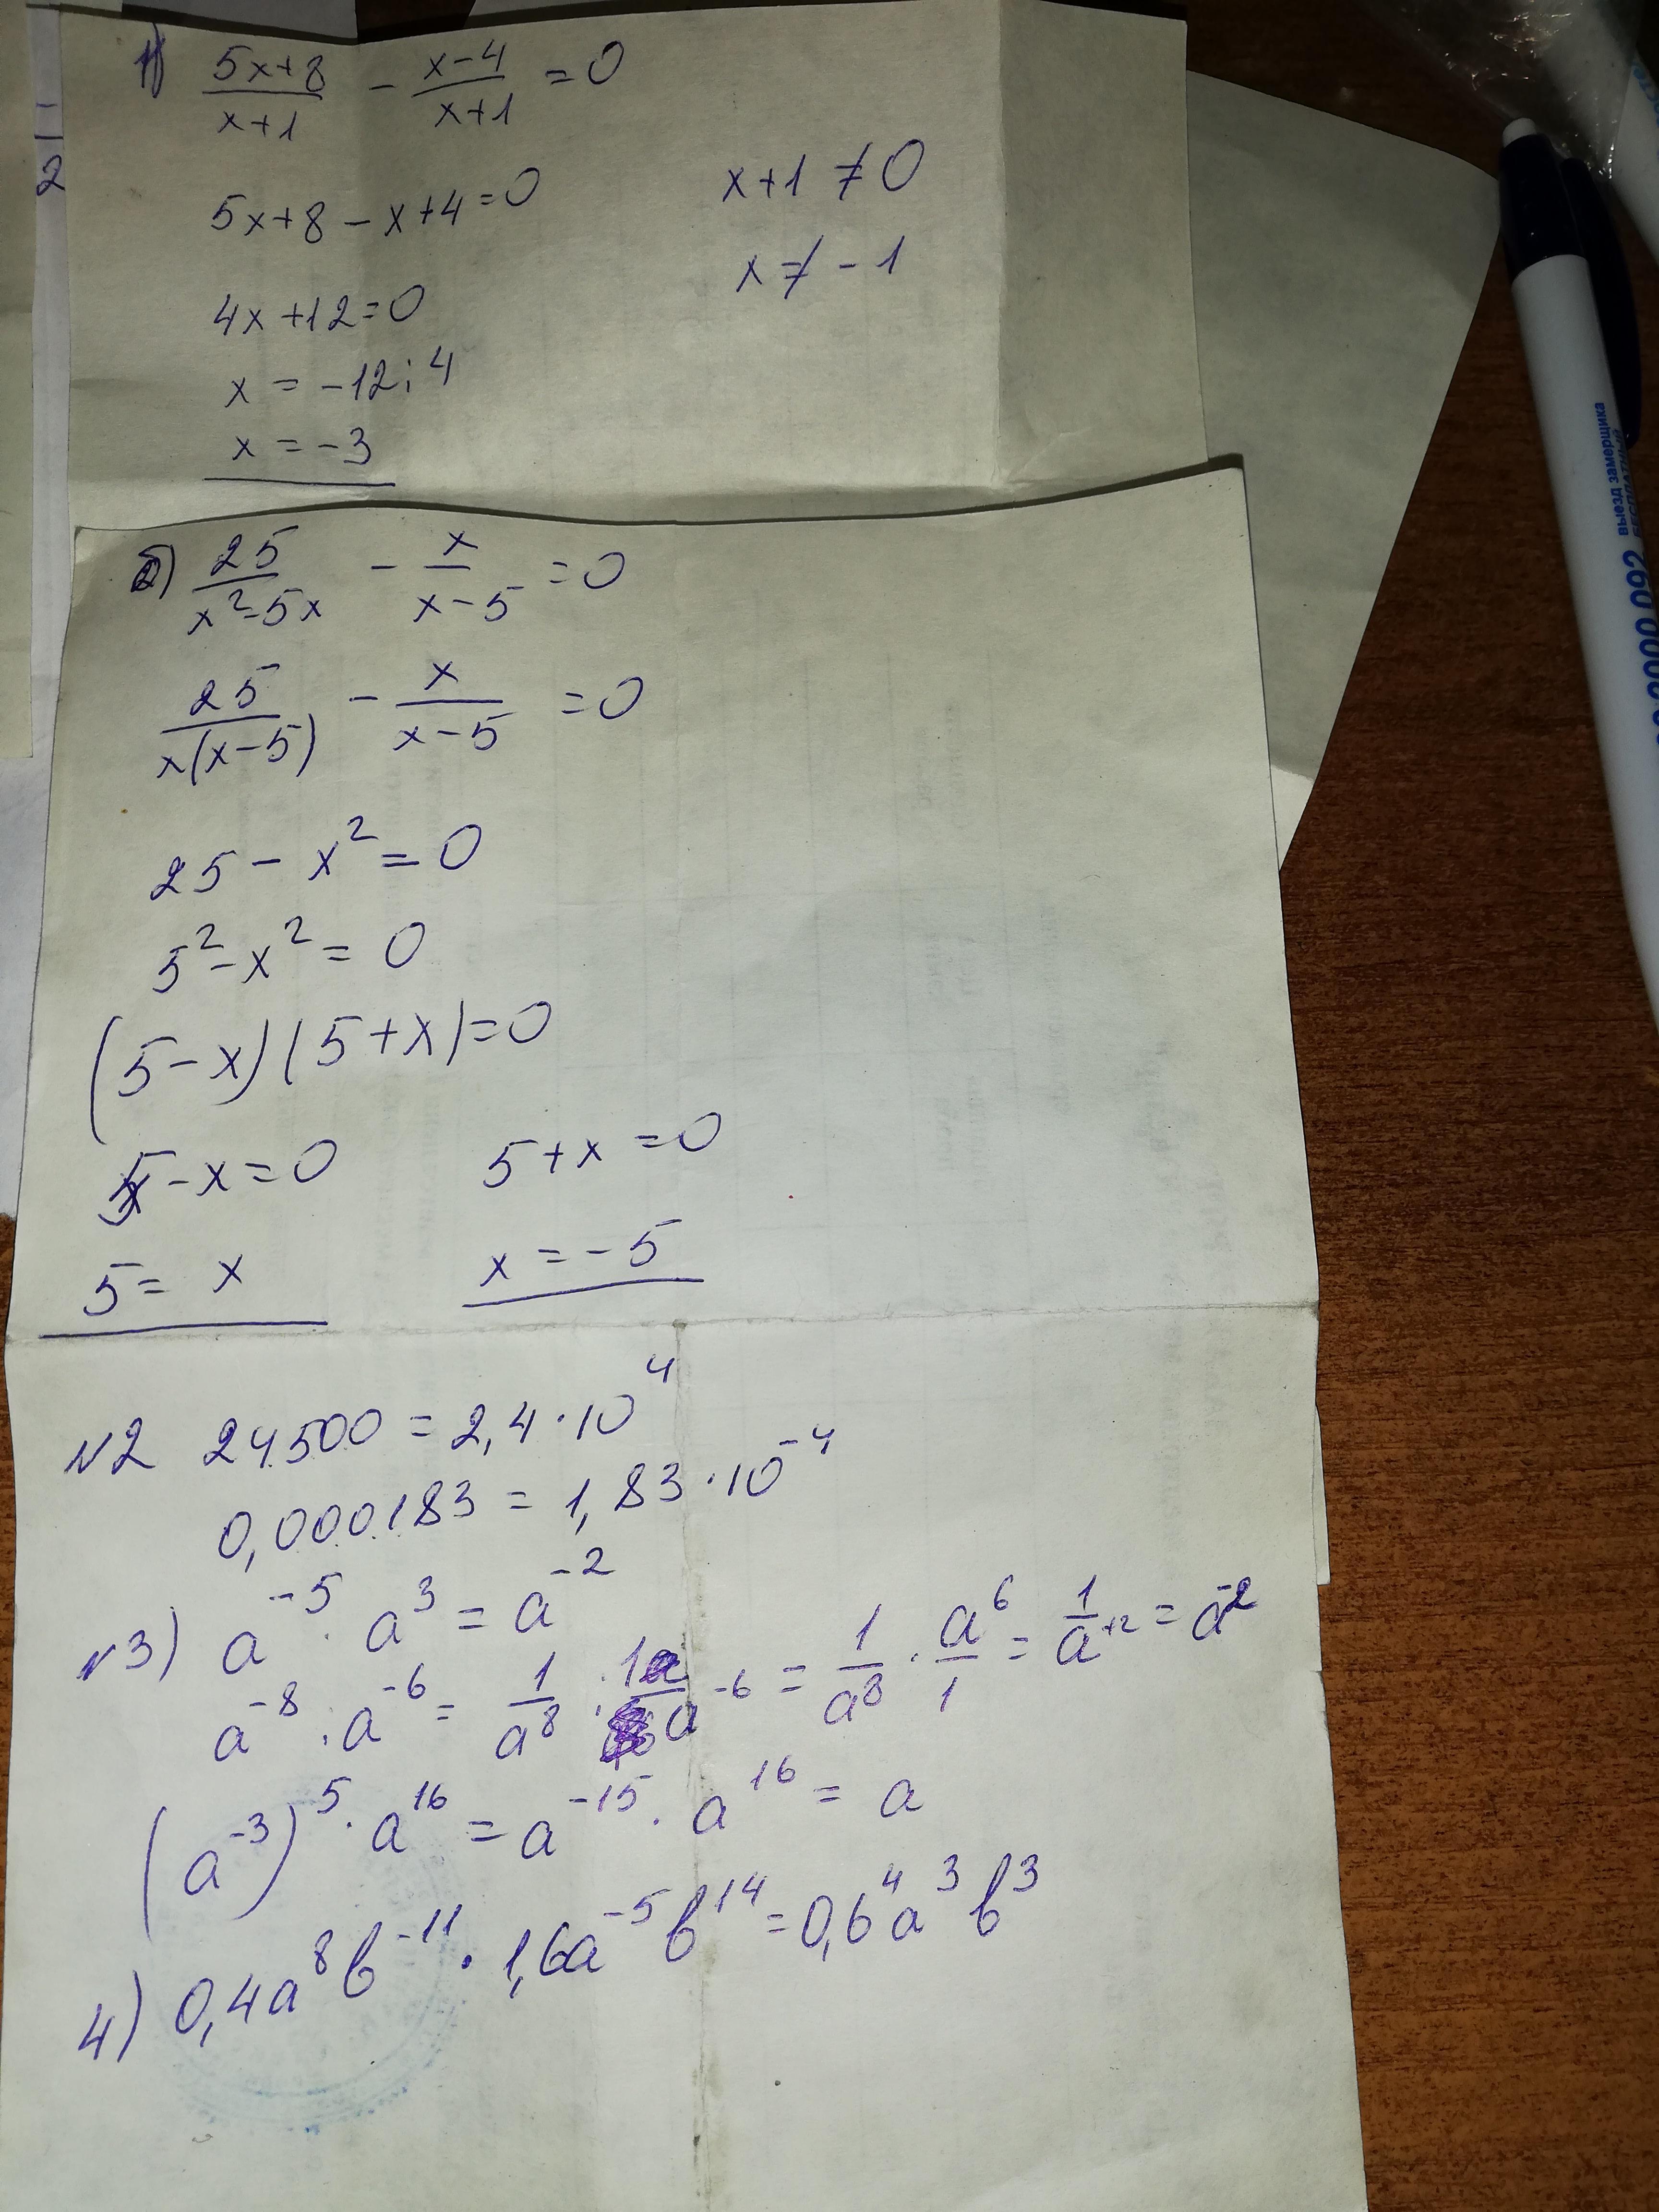 1) (5x+8)/(x+1) - (x-4)/(x+1) = 0
5x+8-x+4=0
x+1 ≠ 0
x ≠ -1
4x+12=0
x = -12:4
x = -3
б) 25/(x²-5x) - x/(x-5) = 0
25/(x(x-5)) - x/(x-5) = 0
25 - x² = 0
5² - x² = 0
(5-x)(5+x)=0
5-x=0
5+x=0
5 = x
x = -5
N2 24500 = 2,4·10⁴
0,000183 = 1,83·10⁻⁴
N3) a⁻⁵ · a³ = a⁻²
a⁻⁸ : a⁻⁶ = 1/a⁸ : 1/a⁻⁶ = 1/a⁸ · a⁶/1 = 1/a⁺² = a⁻²
(a⁻³)⁵ · a¹⁶ = a⁻¹⁵ · a¹⁶ = a
4) 0,4a⁸b⁻¹¹ · 1,6a⁻⁵b¹⁴ = 0,6⁴a³b³
1
2
выезд замерщика
БЕСПЛАТНЫЙ
2000 092